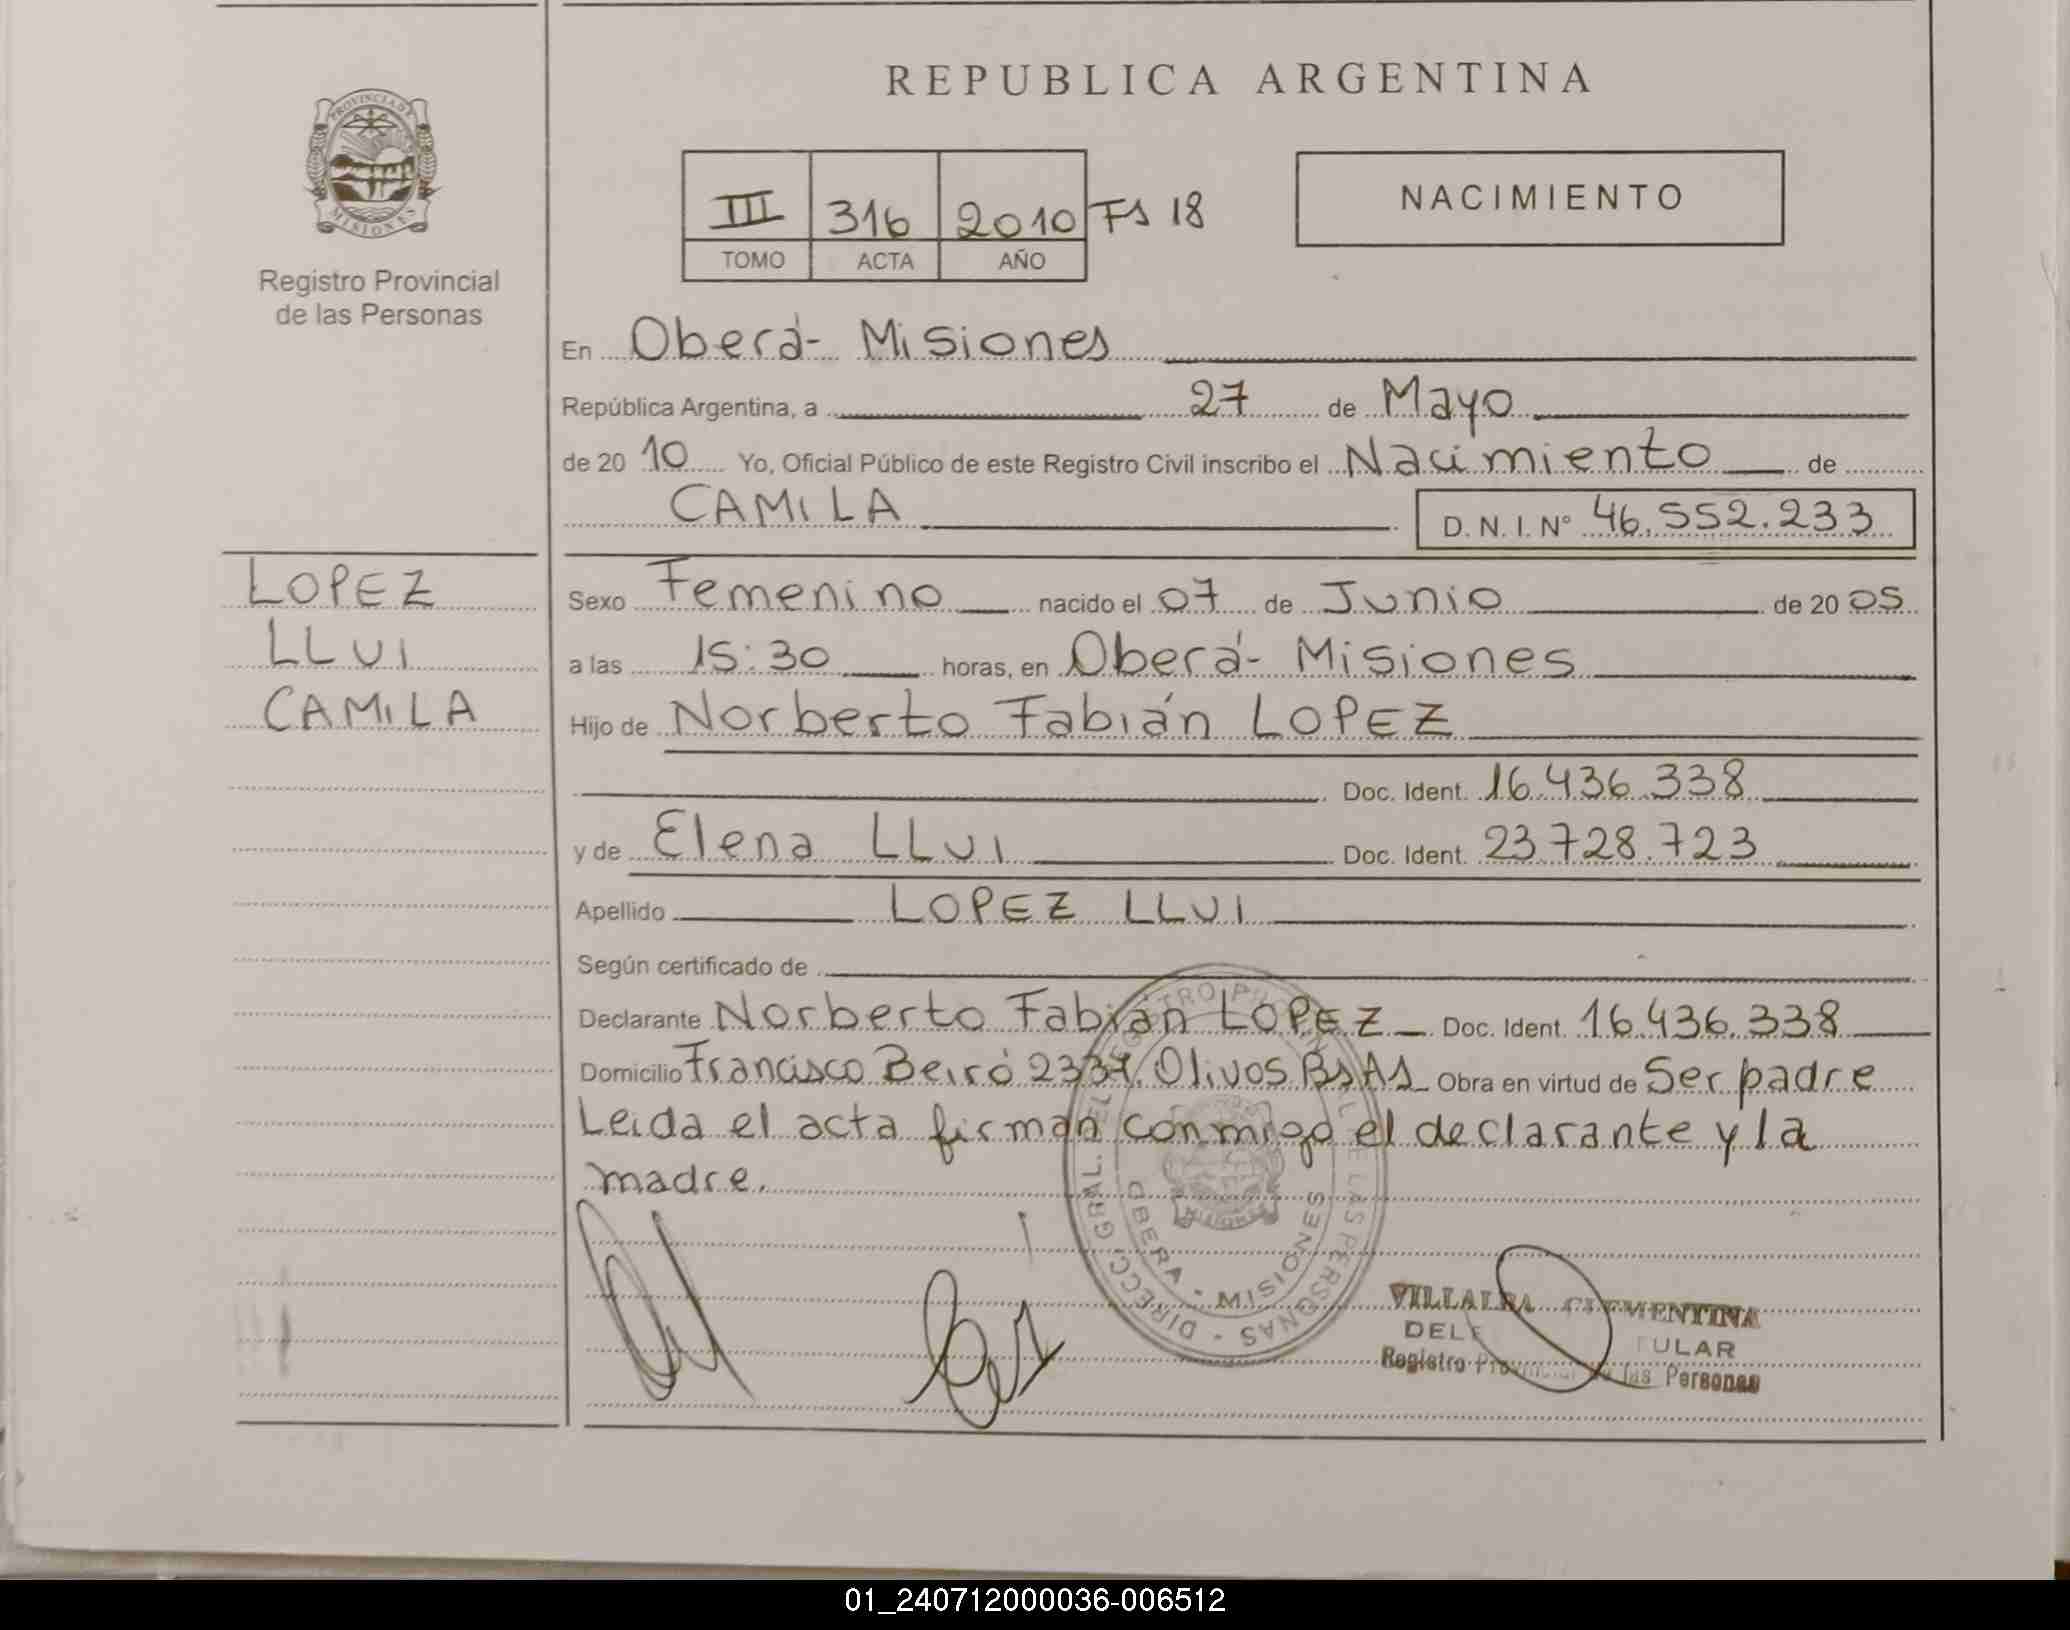 REPUBLICA ARGENTINA
PROVINCIA DE
MISIONES
Registro Provincial
de las Personas
III 316 2010 Fs 18
TOMO ACTA AÑO
NACIMIENTO
En Oberá - Misiones
República Argentina, a 27 de Mayo
de 20 10 Yo, Oficial Público de este Registro Civil inscribo el Nacimiento de
CAMILA D. N. I. Nº 46.552.233
LOPEZ
LLUI
CAMILA
Sexo Femenino nacido el 07 de Junio de 20 05
a las 15:30 horas, en Oberá - Misiones
Hijo de Norberto Fabián LOPEZ
Doc. Ident. 16.436.338
y de Elena LLUI Doc. Ident. 23.728.723
Apellido LOPEZ LLUI
Según certificado de
Declarante Norberto Fabián LOPEZ Doc. Ident. 16.436.338
Domicilio Francisco Beiró Olivos BsAs Obra en virtud de Ser padre
Leida el acta firman conmigo el declarante y la
madre.
OBERA - MISIONES
VILLALBA CLEMENTINA
Registro Provincial de las Personas
01_240712000036-006512